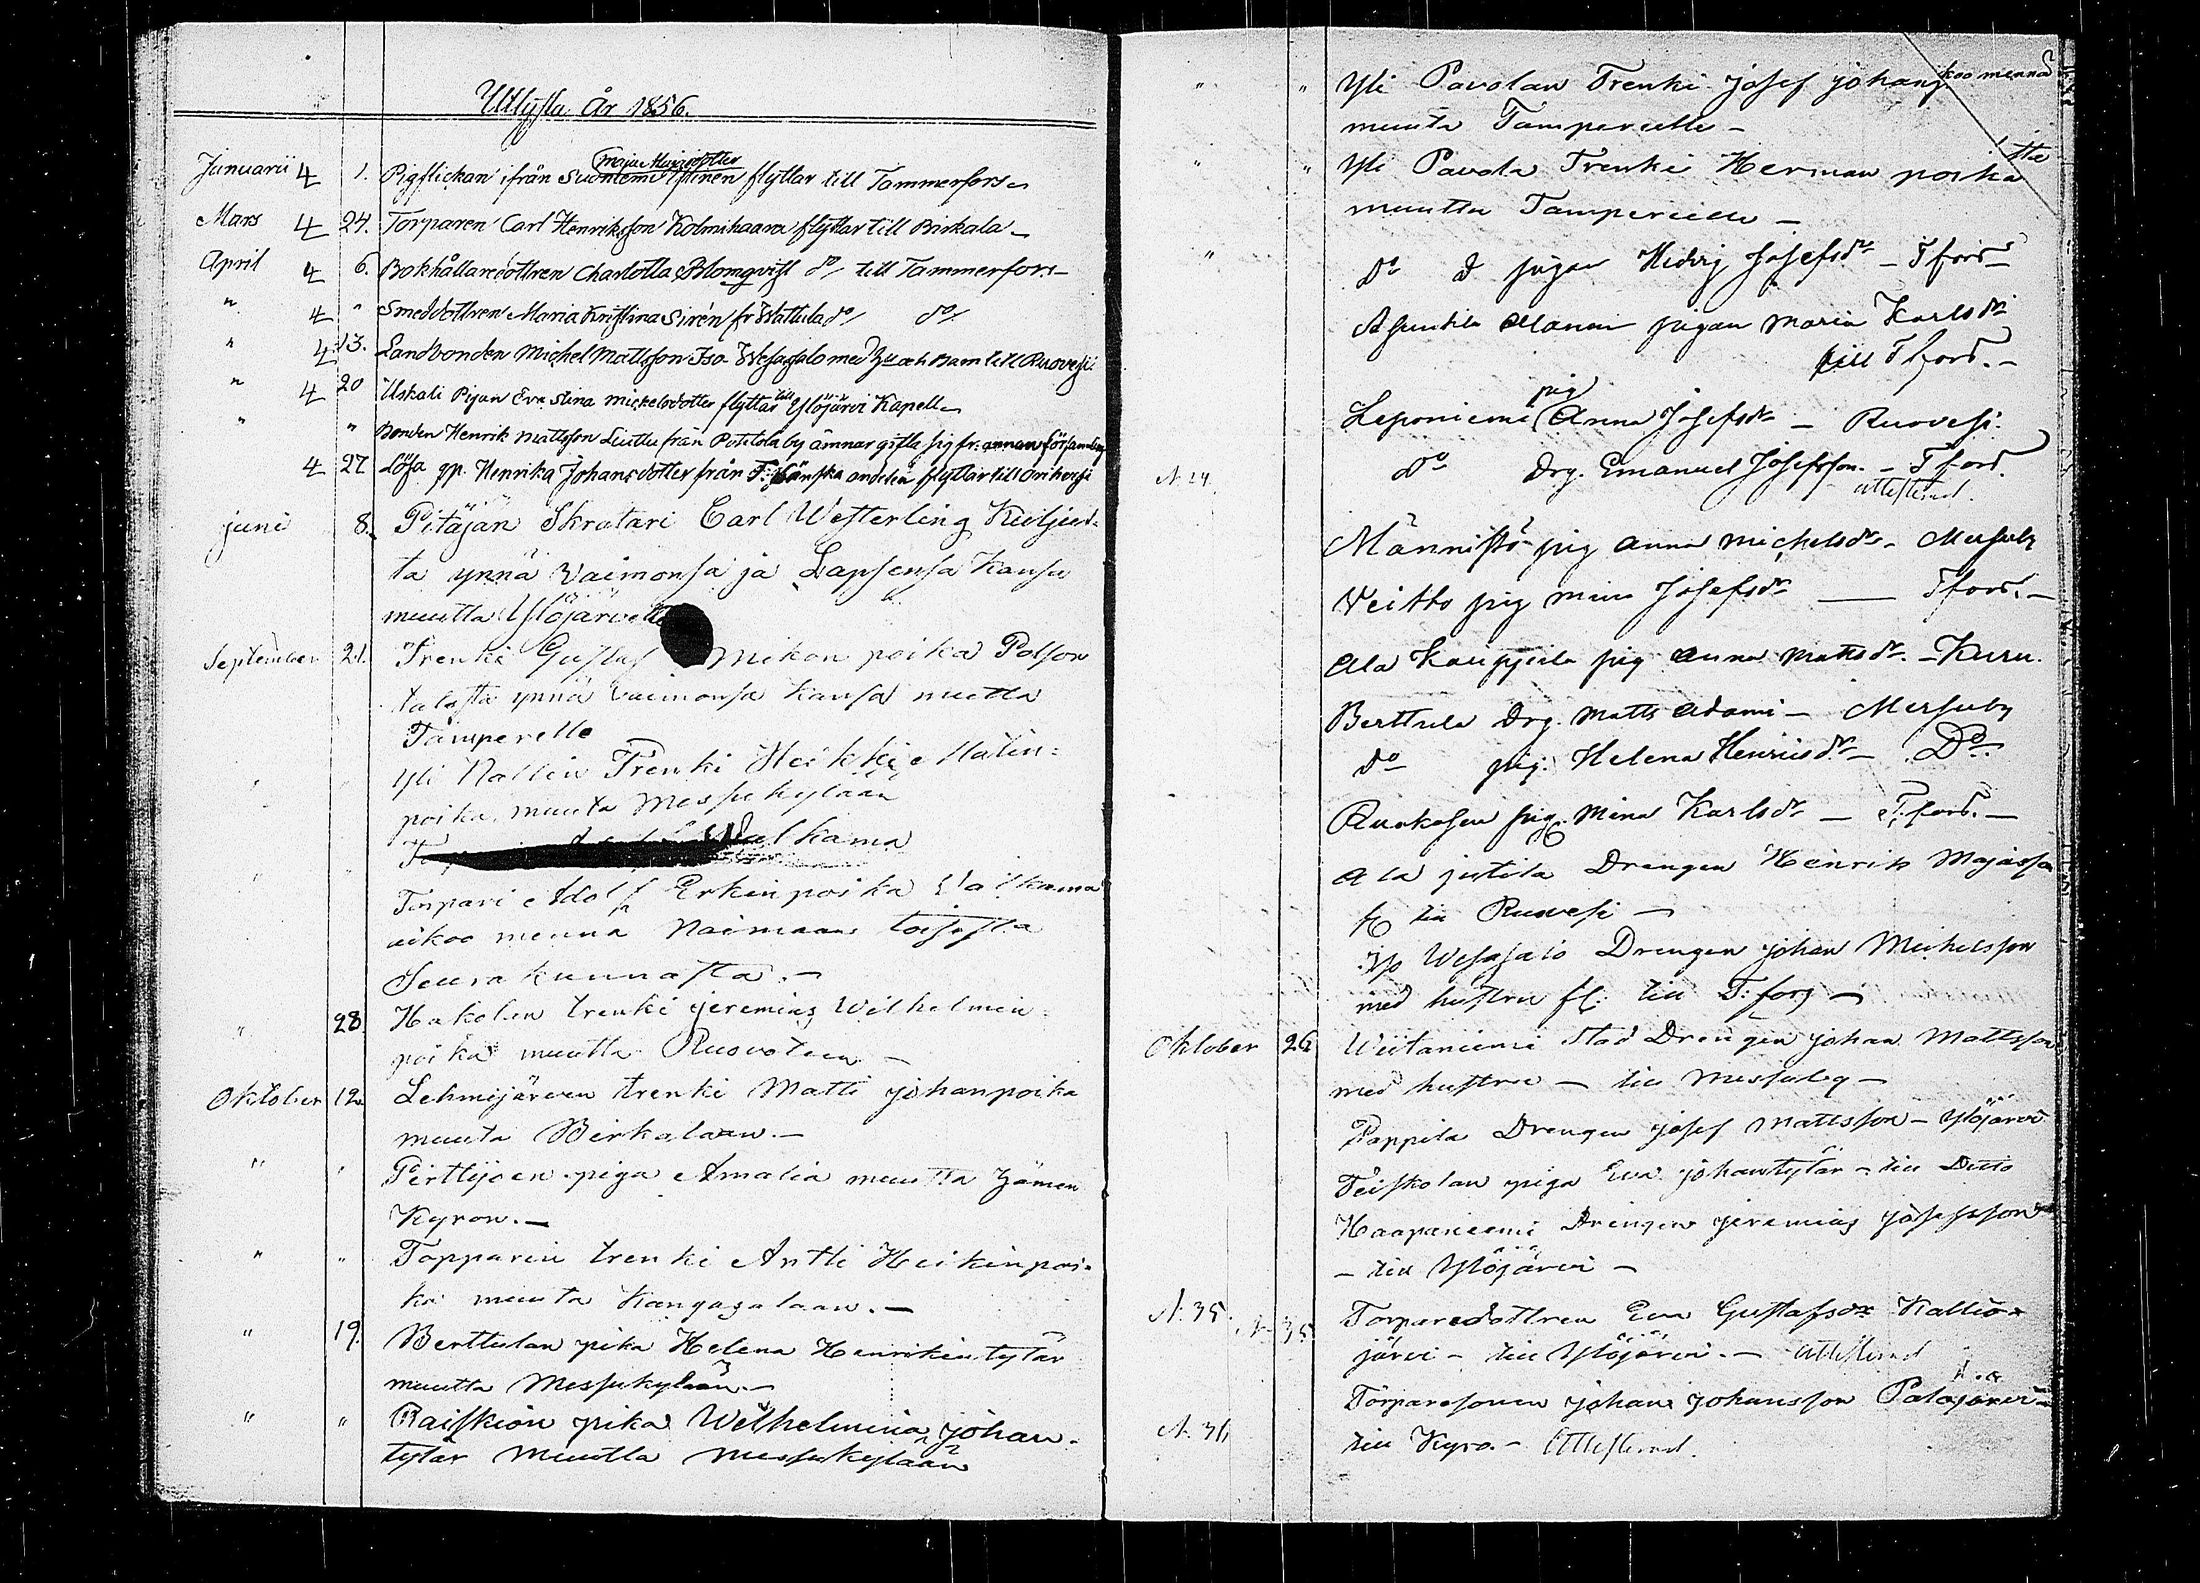 Utlysta År 1856.
Januarii 4 1. Pigflickan ifrån Suoniemi Iltinen flyttar till Tammerfors –
Maja Henricsdotter
Mars 4 24. Torparen Carl Henriksson Kolmihaara flyttar till Birkala –
April 4 6. Bokhållaredottren Charlotta Blomqvist do/ till Tammerfors –
" 4 " Smeddottren Maria Kristina Sirén fr Wattula do/ do/
" 4 13. Landbonden Michel Mattsson Iso Wesajalo med hu och Barn till Ruovesi
" 4 20 Uskali Pigan Eva Stina Mickelsdotter flyttar till Ylöjärvi Kapell –
" " Bonden Henrik Mattsson Liuttu från Pottola by ämnar gifta sig fr. annan församling
4 27 Lösa qp. Henrika Johansdotter från T: flyttar till Orihvesi
juni 8. Pitäjän Skratari Carl Westerling Kuljus-
ta ynnä Vaimonsa ja Lapsensa Kansa
muutta Ylöjärvelle
September 21. Trenki Gustaf Mikon poika Polson
talosta ynnä Vaimonsa kansa muutta
Tamperelle
" Yli Nallin Trenki Heikki Matin-
poika muuta Messukylään
" Torpari Adolf Erkinpoika Valkama
aikoo mennä Naimaan toisesta
Seurakunnasta. –
" 28. Hakolan trenki jeremias Wilhelmin
poika muutta Ruovoteen –
Oktober 12. Lehmijärven trenki Matti johanpoika
muuta Birkalaan. –
" " Perttijoen piga Amalia muutta Hämen
Kyron. –
" " Topparin trenki Antti Heikinpoi-
ka muuta Kangasalaan. –
" 19. Berttulan pika Helena Henrikintytär
muutta Messukylään –
" " Raiskion pika Wilhelmina johan-
tytär Muutta Messukylään
" " Yli Pavolan Trenki Josef johans koo mennä
muuta Tamperelle –
" " Yli Pavola Trenki Herman poika
muutta Tamperelle –
" do d pigan Hedvig Josefsdr – Tfors –
Asuntila Manni pigan Maria Karlsdr
till Tfors. –
Leponiemi pig Anna Josefsdr – Ruovesi.
N 24. do drg. Emanuel Josefsson. – Tfors.
attesterad.
Männistö pig Anna Michelsdr – Messuby
Veitto pig Mina Josefsdr — Tfors. –
Ala Kauppila pig Anna Mattsdr. – Kuru.
Berttula Drg. Matts Adami – Messuby
do pig. Helena Henricsdr – Do.
Ruokosen pig. Mina Karlsdr – T:fors. –
Ala jutila Drengen Henrik Majasson
till Ruovesi –
Iso Wesajalo Drengen johan Michelsson
med hustru fl: till T:fors –
Oktober 26 Wiitaniemi Stad Drengen johan Mattsson
med hustru – till Messuby –
Pappila Drengen josef Mattsson – Ylöjärvi
Teiskolan piga Eva johantytär – till Ditto
Haapaniemi Drengen jeremias josefsson
– till Ylöjärvi –
N. 35. N 35 Torparedottren Eva Gustafsdr Kallio-
järvi – till Ylöjärvi. – attesterad
Torparesonen johan johansson Palojärvi
N. 36 till Kyro. – Attesterad.